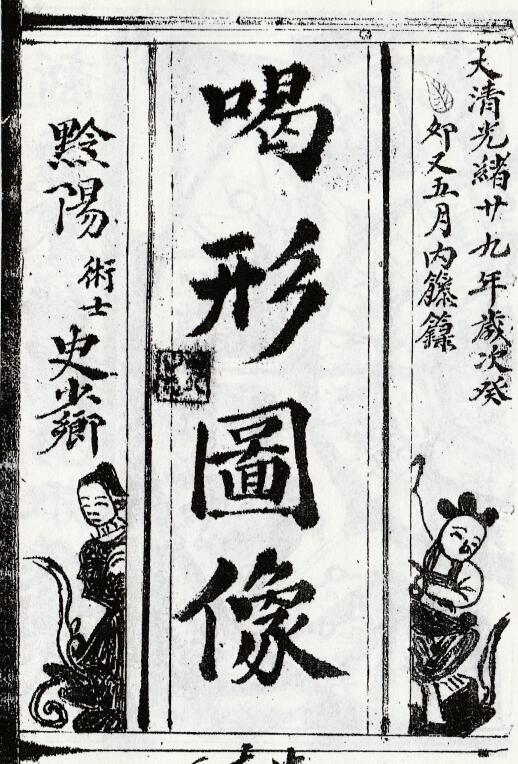 大清光緒廿九年歲次癸
卯又五月內籐籙
喝形圖像
黔陽 術士 史少卿